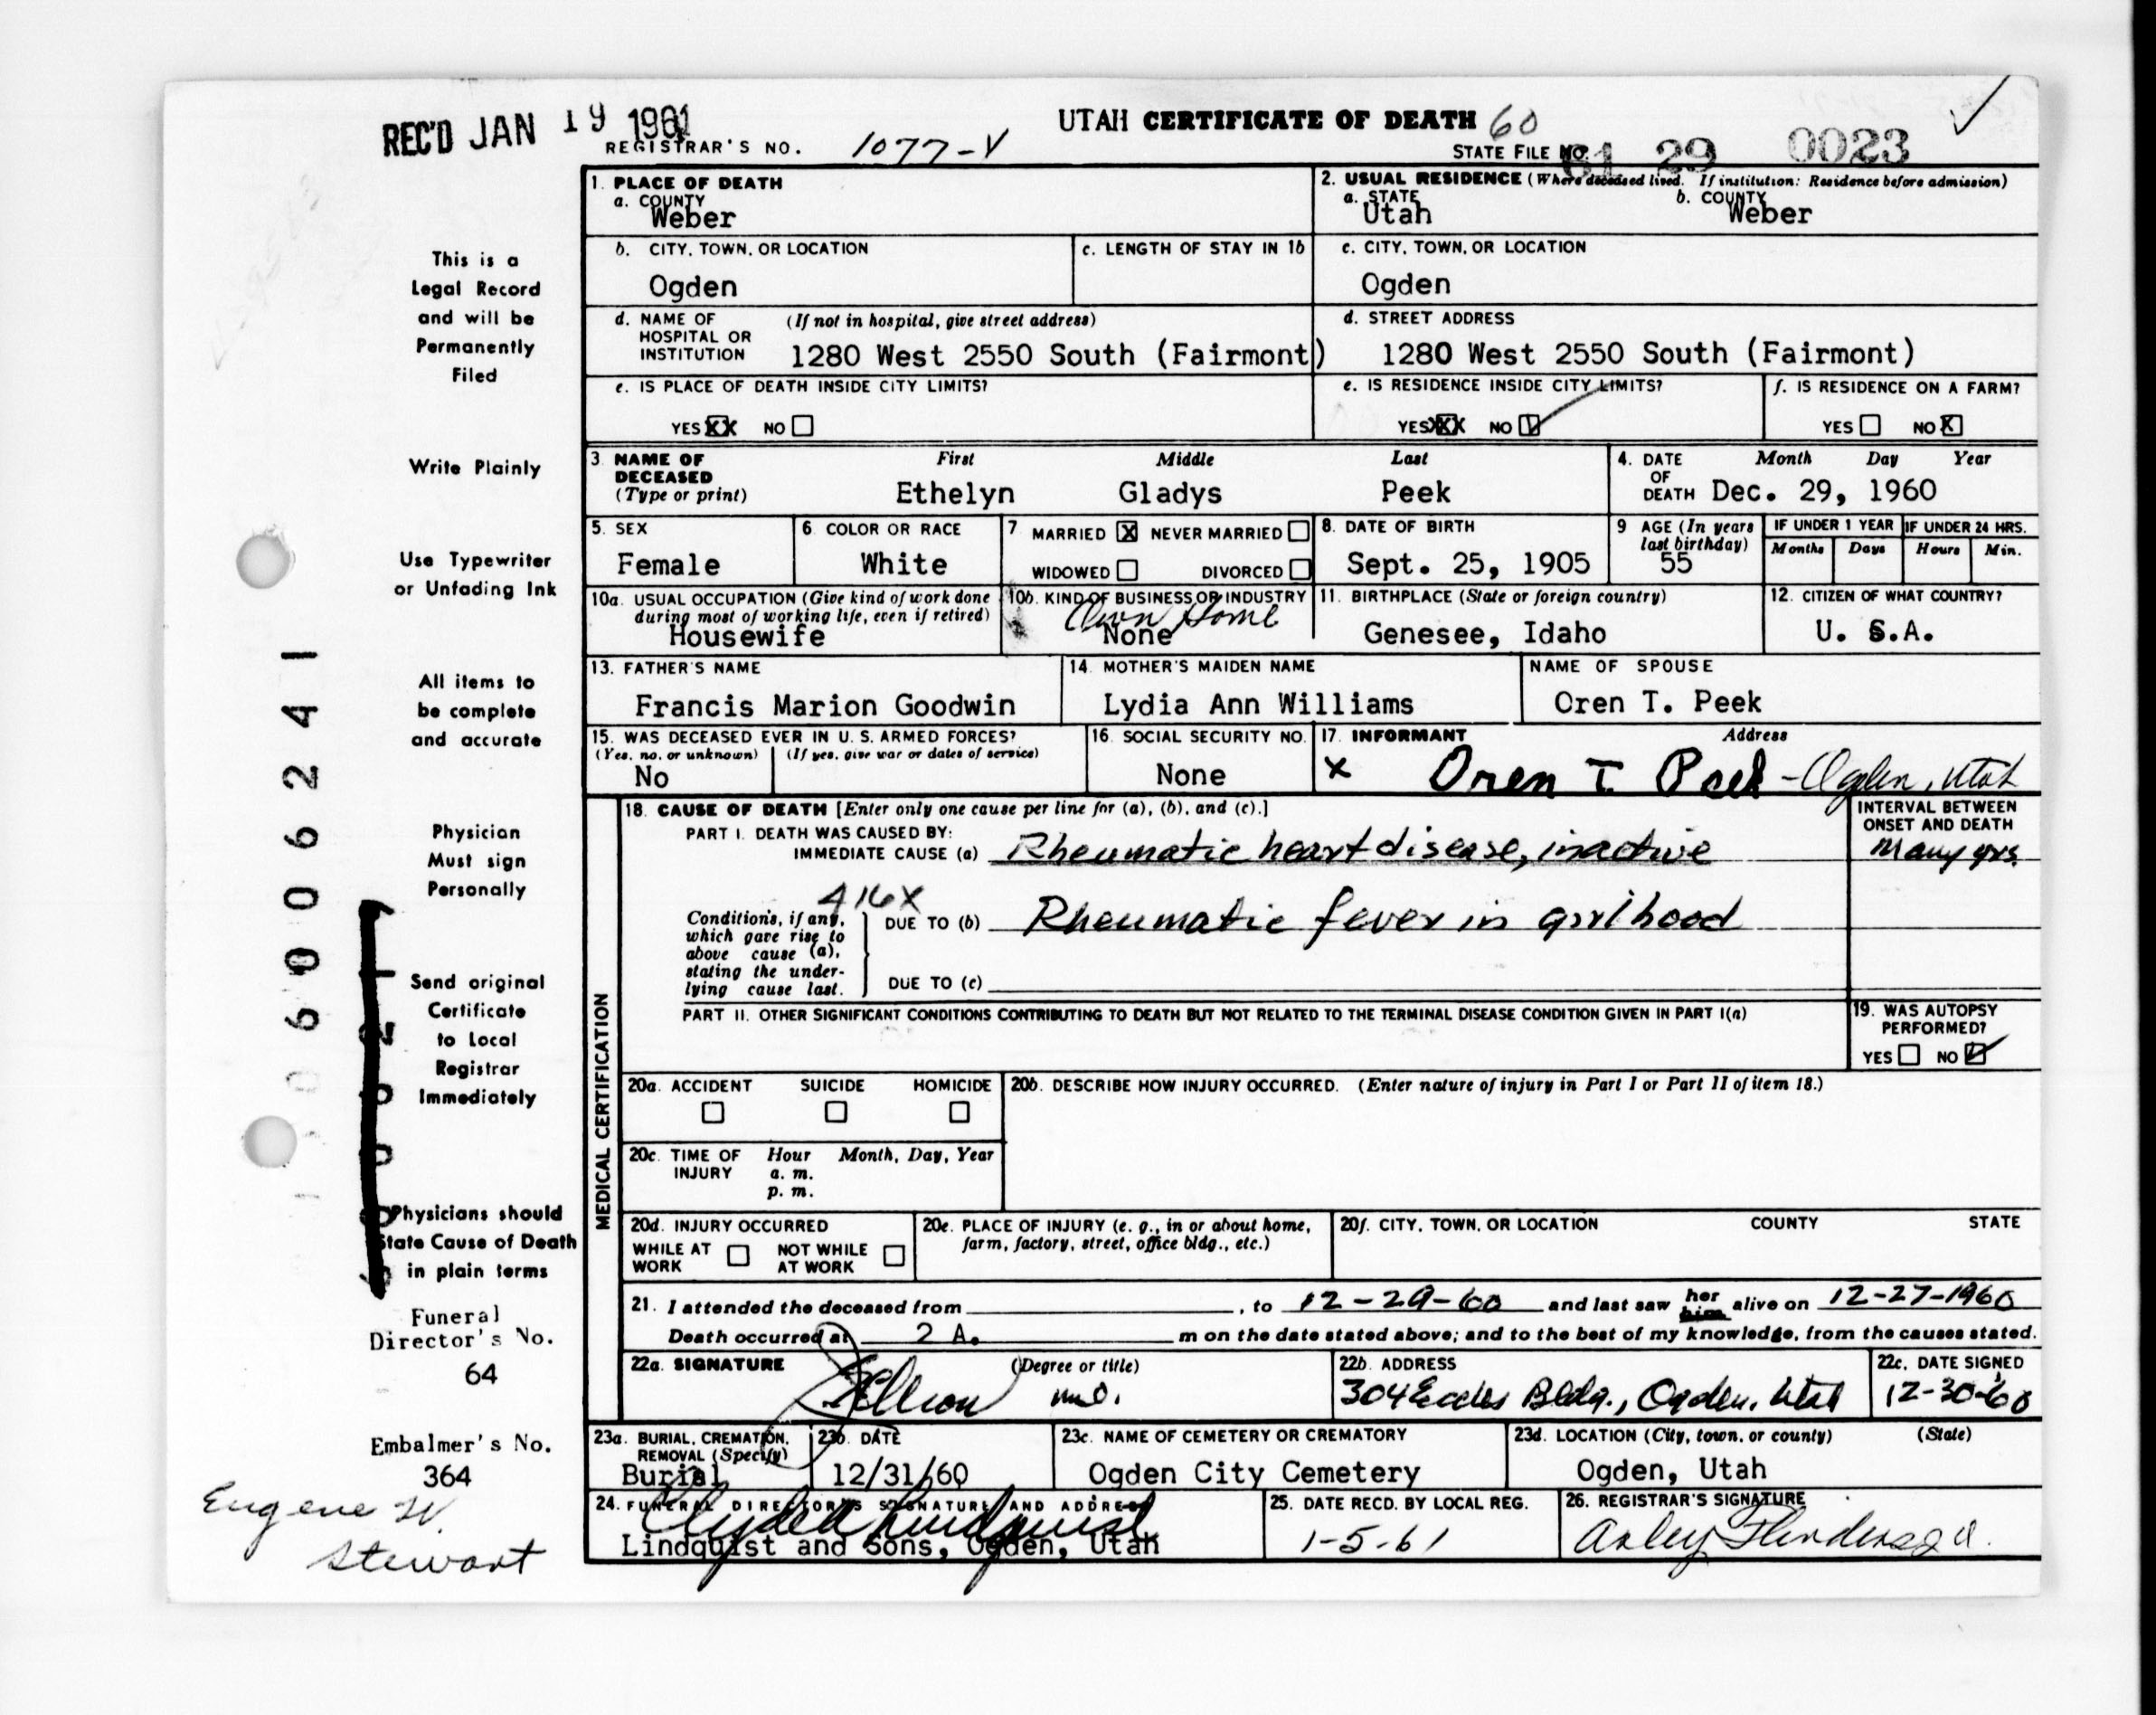 REC'D JAN 19 1961
UTAH CERTIFICATE OF DEATH 60
REGISTRAR'S NO. 1077-V
STATE FILE NO. 61 29 0023
1. PLACE OF DEATH
a. COUNTY
Weber
2. USUAL RESIDENCE (Where deceased lived. If institution: Residence before admission)
a. STATE b. COUNTY
Utah Weber
b. CITY, TOWN, OR LOCATION
Ogden
c. LENGTH OF STAY IN 1b
c. CITY, TOWN, OR LOCATION
Ogden
d. NAME OF HOSPITAL OR INSTITUTION (If not in hospital, give street address)
1280 West 2550 South (Fairmont)
d. STREET ADDRESS
1280 West 2550 South (Fairmont)
e. IS PLACE OF DEATH INSIDE CITY LIMITS?
YES XX NO
e. IS RESIDENCE INSIDE CITY LIMITS?
YES XXX NO
f. IS RESIDENCE ON A FARM?
YES NO X
3. NAME OF DECEASED (Type or print)
First Middle Last
Ethelyn Gladys Peek
4. DATE OF DEATH Month Day Year
Dec. 29, 1960
5. SEX
Female
6. COLOR OR RACE
White
7 MARRIED X NEVER MARRIED
WIDOWED DIVORCED
8. DATE OF BIRTH
Sept. 25, 1905
9 AGE (In years last birthday)
55
IF UNDER 1 YEAR IF UNDER 24 HRS.
Months Days Hours Min.
10a. USUAL OCCUPATION (Give kind of work done during most of working life, even if retired)
Housewife
10b. KIND OF BUSINESS OR INDUSTRY
Own Home
None
11. BIRTHPLACE (State or foreign country)
Genesee, Idaho
12. CITIZEN OF WHAT COUNTRY?
U. S.A.
13. FATHER'S NAME
Francis Marion Goodwin
14. MOTHER'S MAIDEN NAME
Lydia Ann Williams
NAME OF SPOUSE
Oren T. Peek
15. WAS DECEASED EVER IN U. S. ARMED FORCES?
(Yes, no, or unknown) (If yes, give war or dates of service)
No
16. SOCIAL SECURITY NO.
None
17. INFORMANT Address
X Oren T Peek - Ogden, Utah
MEDICAL CERTIFICATION
18. CAUSE OF DEATH [Enter only one cause per line for (a), (b), and (c).]
INTERVAL BETWEEN ONSET AND DEATH
PART I. DEATH WAS CAUSED BY:
IMMEDIATE CAUSE (a) Rheumatic heart disease, inactive
Many yrs.
416X
Conditions, if any, which gave rise to above cause (a), stating the underlying cause last.
DUE TO (b) Rheumatic fever in girlhood
DUE TO (c)
PART II. OTHER SIGNIFICANT CONDITIONS CONTRIBUTING TO DEATH BUT NOT RELATED TO THE TERMINAL DISEASE CONDITION GIVEN IN PART I(a)
19. WAS AUTOPSY PERFORMED?
YES NO
20a. ACCIDENT SUICIDE HOMICIDE
20b. DESCRIBE HOW INJURY OCCURRED. (Enter nature of injury in Part I or Part II of item 18.)
20c. TIME OF INJURY Hour Month, Day, Year
a. m.
p. m.
20d. INJURY OCCURRED
WHILE AT WORK NOT WHILE AT WORK
20e. PLACE OF INJURY (e. g., in or about home, farm, factory, street, office bldg., etc.)
20f. CITY, TOWN, OR LOCATION COUNTY STATE
21. I attended the deceased from , to 12-29-60 and last saw her him alive on 12-27-1960
Death occurred at 2 A. m on the date stated above; and to the best of my knowledge, from the causes stated.
22a. SIGNATURE (Degree or title)
M.D.
22b. ADDRESS
304 Eccles Bldg., Ogden, Utah
22c. DATE SIGNED
12-30-60
23a. BURIAL, CREMATION, REMOVAL (Specify)
Burial
23b. DATE
12/31/60
23c. NAME OF CEMETERY OR CREMATORY
Ogden City Cemetery
23d. LOCATION (City, town, or county) (State)
Ogden, Utah
24. FUNERAL DIRECTOR'S SIGNATURE AND ADDRESS
Lindquist
Lindquist and Sons, Ogden, Utah
25. DATE RECD. BY LOCAL REG.
1-5-61
26. REGISTRAR'S SIGNATURE
This is a
Legal Record
and will be
Permanently
Filed
Write Plainly
Use Typewriter
or Unfading Ink
All items to
be complete
and accurate
Physician
Must sign
Personally
Send original
Certificate
to Local
Registrar
Immediately
Physicians should
State Cause of Death
in plain terms
Funeral
Director's No.
64
Embalmer's No.
364
Eugene W.
Stewart
6006241